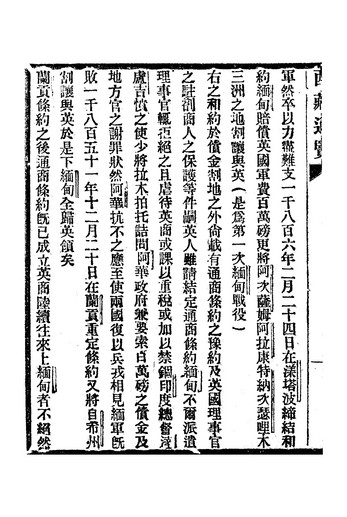 西藏通覽
軍然卒以力盡難支一千八百六年二月二十四日在漾塔波締結和
約緬甸賠償英國軍費百萬磅更將阿次薩姆阿拉康特納次瑟哩木
三洲之地割讓與英（是爲第一次緬甸戰役）
右之和約於償金割地之外尙載有通商條約之豫約及英國理事官
之駐剳商人之保護等件嗣英人雖請結定通商條約緬甸不爾派遣
理事官輒拒絕之且虐待英商或課以重稅或加以禁錮印度總督達
處吉憤之使少將拉木拍托詰問阿華政府兼要索百萬磅之償金及
地方官之謝罪狀然阿華抗不之應至使兩國復以兵戎相見緬軍旣
敗一千八百五十一年十二月二十日在蘭貢重定條約又將自希州
割讓與英於是下緬甸全歸英領矣
蘭貢條約之後通商條約旣已成立英商陸續往來上緬甸者不絕然